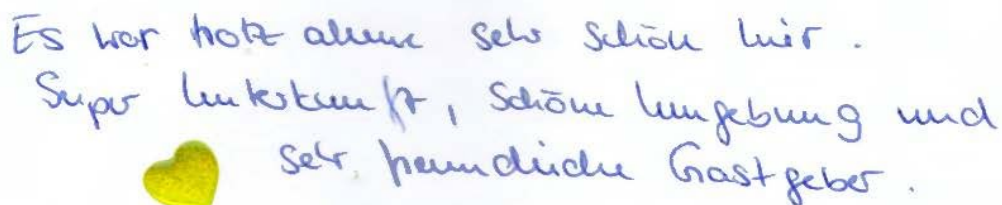 Es war trotz allem sehr schön hier.
Super Unterkunft, schöne Umgebung und
sehr freundliche Gastgeber.